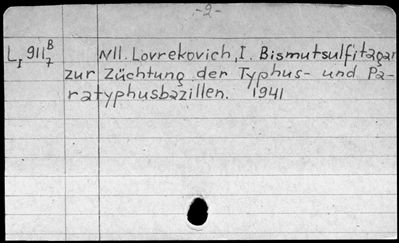 -2-
L_I 911 B/7 N11. Lovrekovich, I. Bismutsulfitagar
zur Züchtung der Typhus- und Pa-
ratyphusbazillen. 1941